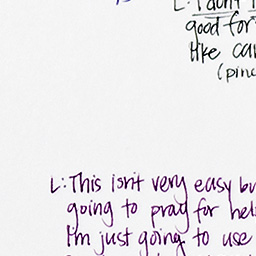 L: I don't
good for
like
(pinc
L: This isn't very easy bu
going to pray for hel
I'm just going to use